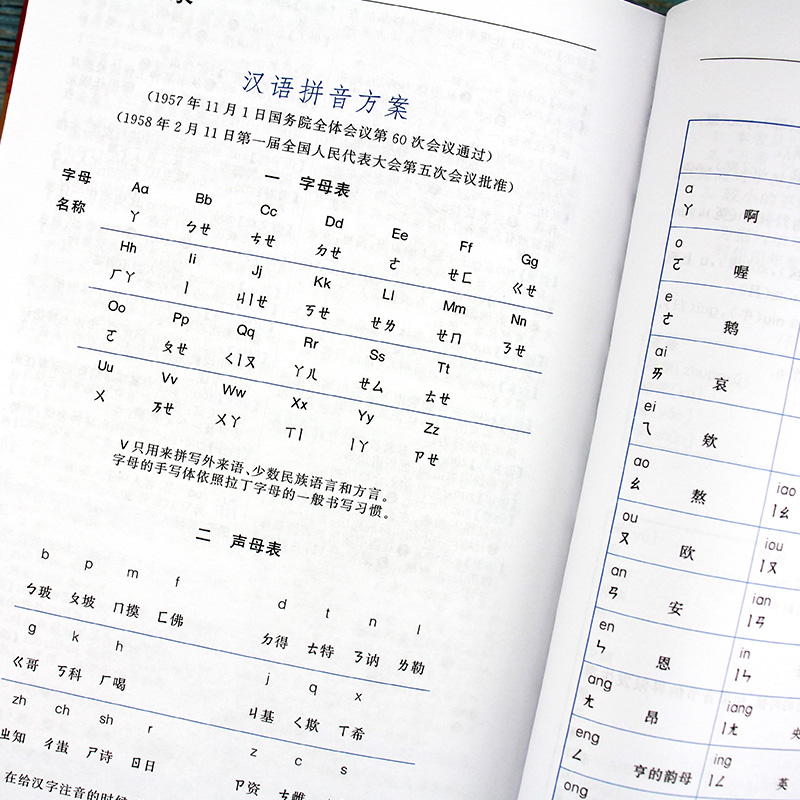 汉语拼音方案
(1957年11月1日国务院全体会议第60次会议通过)
(1958年2月11日第一届全国人民代表大会第五次会议批准)
一 字母表
字母 Aa Bb Cc Dd Ee Ff Gg
名称 ㄚ ㄅㄝ ㄘㄝ ㄉㄝ ㄜ ㄝㄈ ㄍㄝ
Hh Ii Jj Kk Ll Mm Nn
ㄏㄚ ㄧ ㄐㄧㄝ ㄎㄝ ㄝㄌ ㄝㄇ ㄋㄝ
Oo Pp Qq Rr Ss Tt
ㄛ ㄆㄝ ㄑㄧㄡ ㄚㄦ ㄝㄙ ㄊㄝ
Uu Vv Ww Xx Yy Zz
ㄨ ㄪㄝ ㄨㄚ ㄒㄧ ㄧㄚ ㄗㄝ
V只用来拼写外来语、少数民族语言和方言。
字母的手写体依照拉丁字母的一般书写习惯。
二 声母表
b p m f d t n l
ㄅ玻 ㄆ坡 ㄇ摸 ㄈ佛 ㄉ得 ㄊ特 ㄋ讷 ㄌ勒
g k h j q x
ㄍ哥 ㄎ科 ㄏ喝 ㄐ基 ㄑ欺 ㄒ希
zh ch sh r z c s
ㄓ知 ㄔ蚩 ㄕ诗 ㄖ日 ㄗ资 ㄘ雌 ㄙ思
在给汉字注音的时候
a
ㄚ 啊
o
ㄛ 喔
e
ㄜ 鹅
ai
ㄞ 哀
ei
ㄟ 欸
ao iao
ㄠ 熬 ㄧㄠ
ou iou
ㄡ 欧 ㄧㄡ
an ian
ㄢ 安 ㄧㄢ
en in
ㄣ 恩 ㄧㄣ
ang iang
ㄤ 昂 ㄧㄤ 央
eng ing
ㄥ 亨的韵母 ㄧㄥ 英
ong